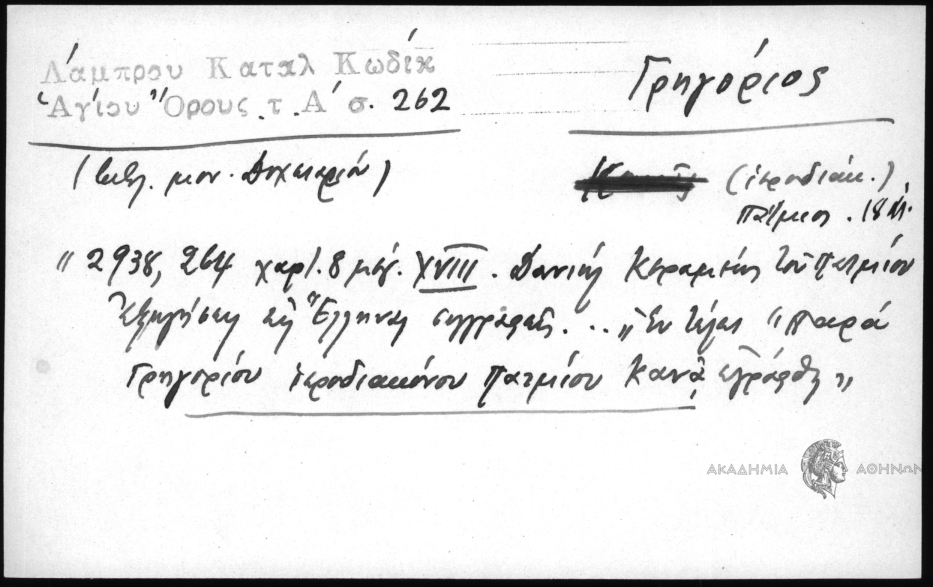 Λάμπρου Καταλ Κωδίκ
Ἁγίου Ὄρους τ. Α΄ σ. 262
Γρηγόριος
(βιβλ. μον. Δοχειαρίου)
(ἱεροδιάκ.)
Πάτμιος. 18 αἰ.
" 2938, 264 χαρτ. 8 μεγ. XVIII. Δανιὴλ Κεραμέως τοῦ Πατμίου
Ἐξηγήσεις εἰς Ἕλληνας συγγραφεῖς... " Ἐν τέλει " Παρὰ
Γρηγορίου ἱεροδιακόνου Πατμίου Κανᾶ ἐγράφθη "
ΑΚΑΔΗΜΙΑ ΑΘΗΝΩΝ